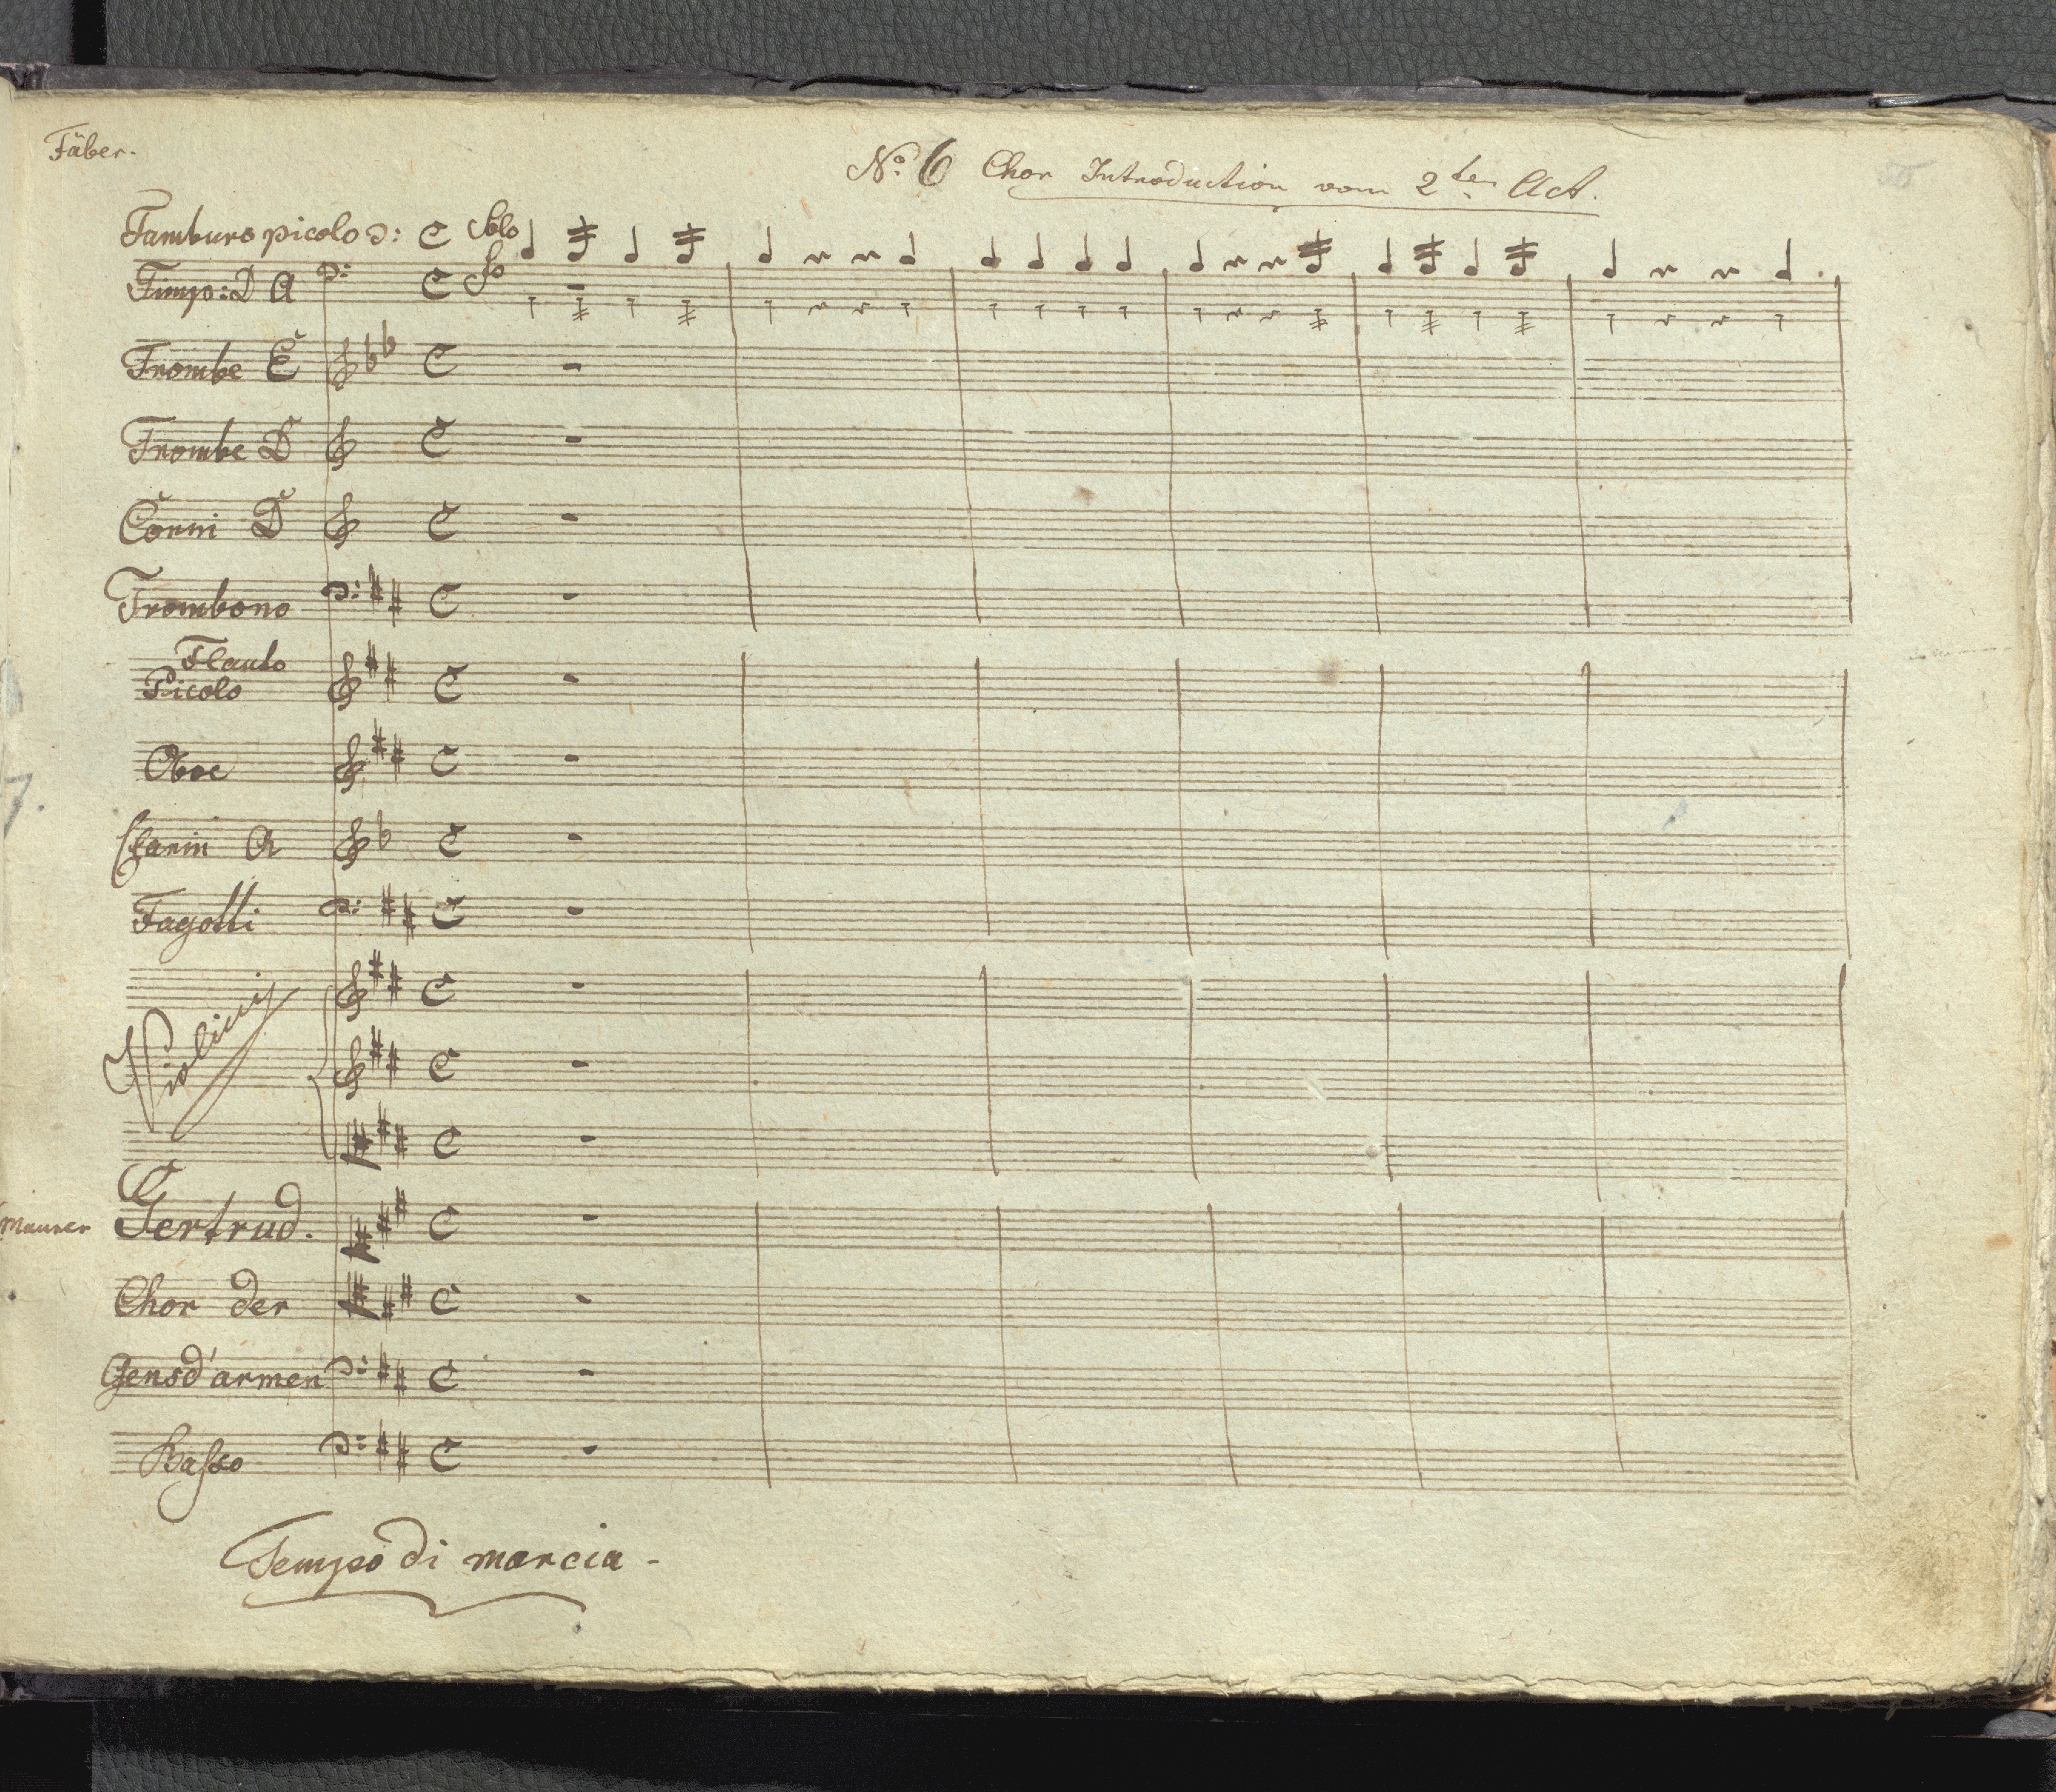 Fäber.
No. 6 Chor Introduction vom 2ten Act.
Tamburo picolo Solo
Timp: D A So
Trombe E
Trombe D
Corni D
Trombono
Flauto
Picolo
Oboe
Clarin A
Fagotti
Violini
Maurer Gertrud.
Chor der
Gensd'armen
Basso
Tempo di marcia -
7.